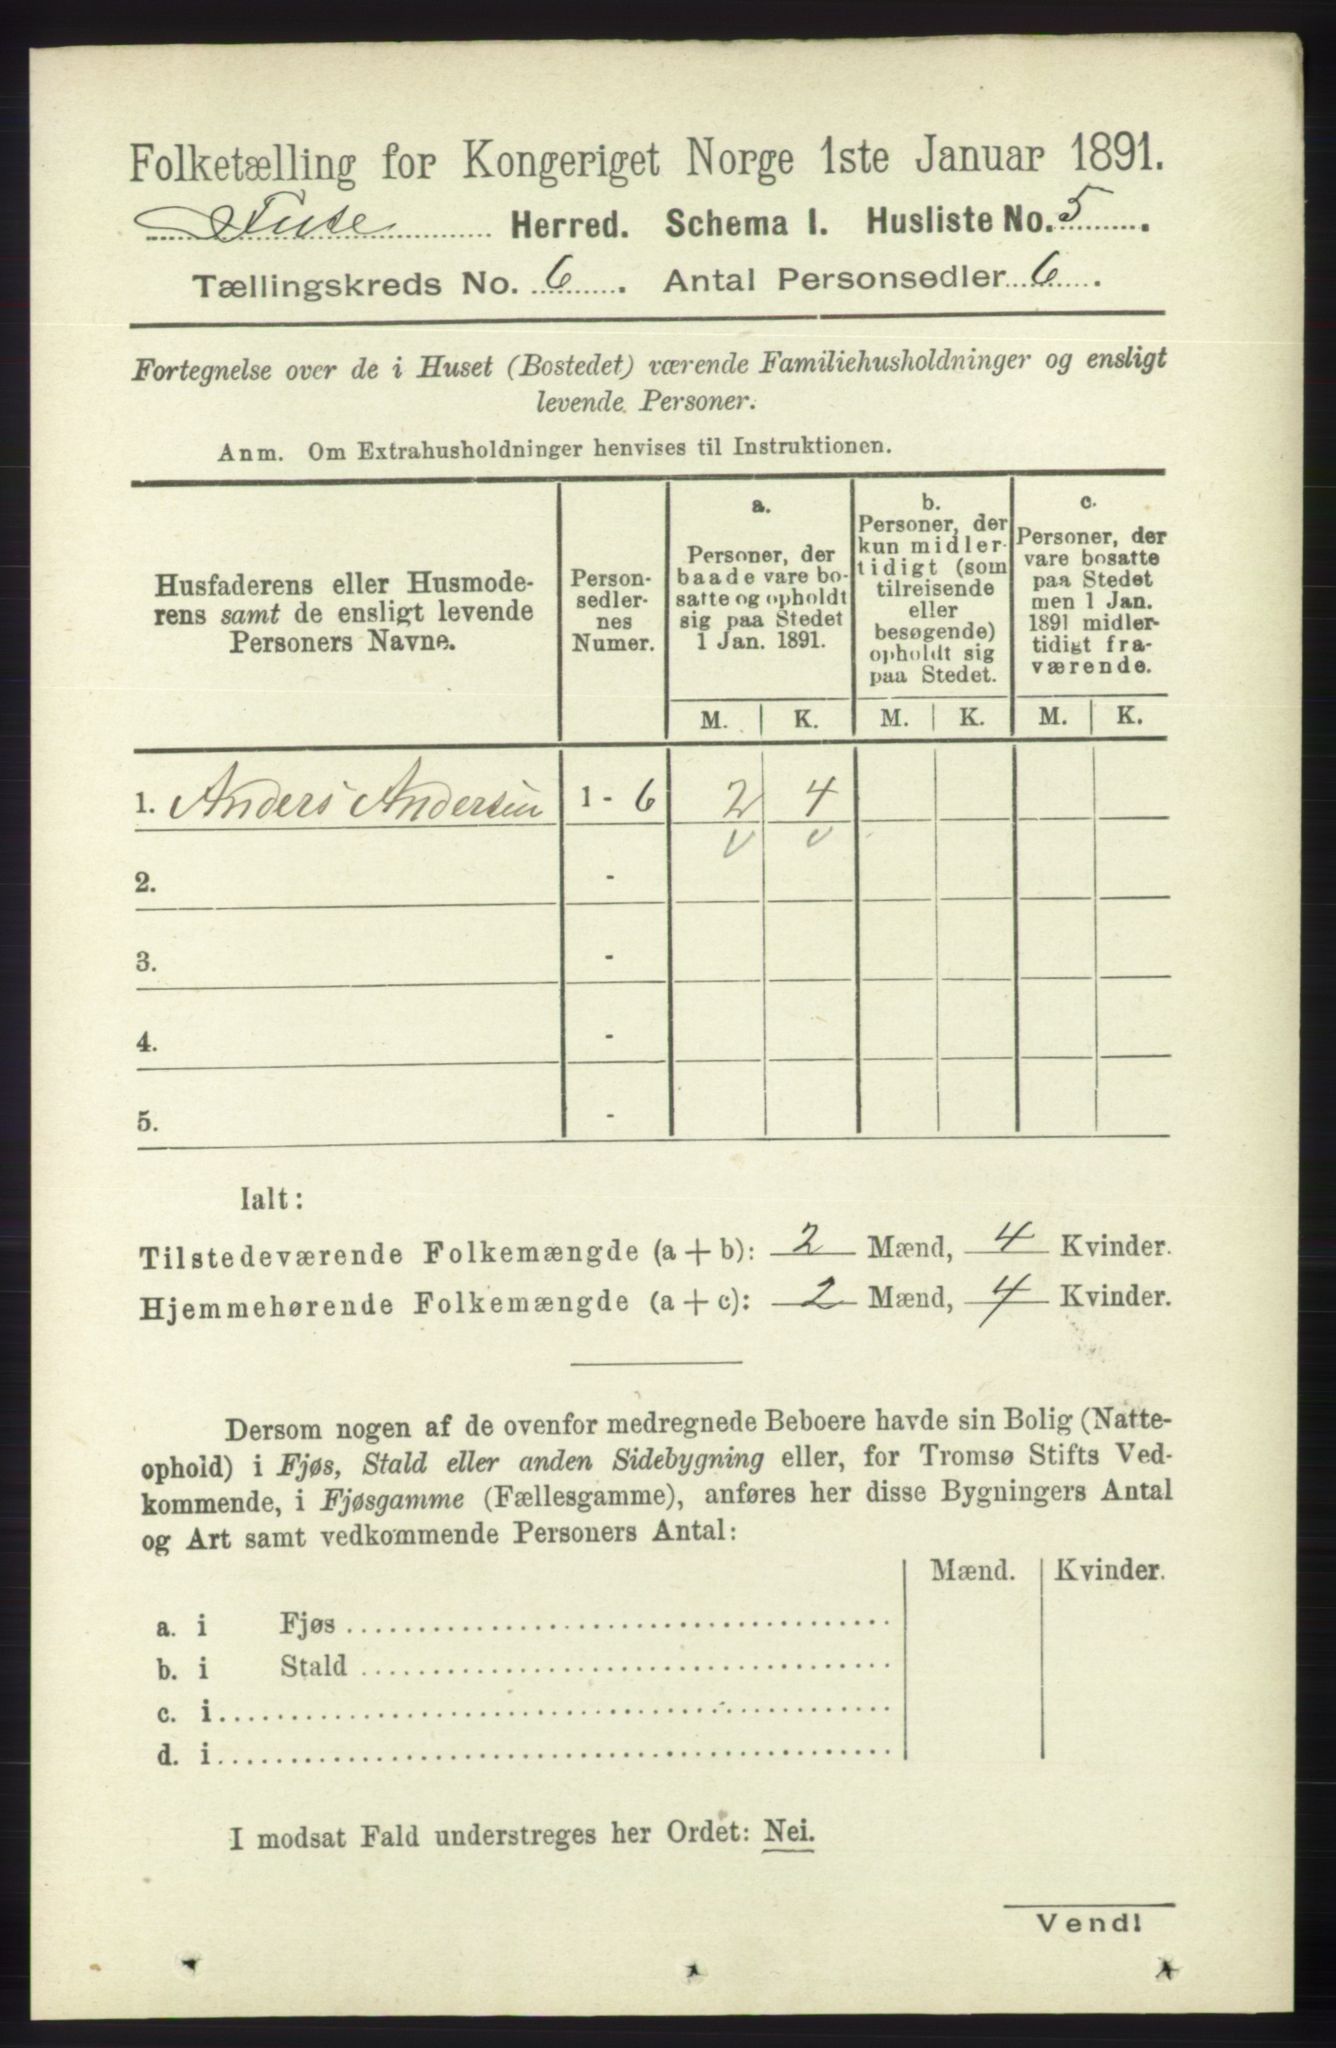 Folketælling for Kongeriget Norge 1ste Januar 1891.
Fuse Herred. Schema I. Husliste No. 5.
Tællingskreds No. 6. Antal Personsedler 6.
Fortegnelse over de i Huset (Bostedet) værende Familiehusholdninger og ensligt
levende Personer.
Anm. Om Extrahusholdninger henvises til Instruktionen.
Husfaderens eller Husmode-
rens samt de ensligt levende
Personers Navne.
Person-
sedler-
nes
Numer.
a.
Personer, der
baade vare bo-
satte og opholdt
sig paa Stedet
1 Jan. 1891.
b.
Personer, der
kun midler-
tidigt (som
tilreisende
eller
besøgende)
opholdt sig
paa Stedet.
c.
Personer, der
vare bosatte
paa Stedet
men 1 Jan.
1891 midler-
tidigt fra-
værende.
M. K. M. K. M. K.
1. Anders Andersen 1 - 6 2 4
2. -
3. -
4. -
5. -
Ialt:
Tilstedeværende Folkemængde (a + b): 2 Mænd, 4 Kvinder.
Hjemmehørende Folkemængde (a + c): 2 Mænd, 4 Kvinder.
Dersom nogen af de ovenfor medregnede Beboere havde sin Bolig (Natte-
ophold) i Fjøs, Stald eller anden Sidebygning eller, for Tromsø Stifts Ved-
kommende, i Fjøsgamme (Fællesgamme), anføres her disse Bygningers Antal
og Art samt vedkommende Personers Antal:
Mænd. Kvinder.
a. i Fjøs
b. i Stald
c. i
d. i
I modsat Fald understreges her Ordet: Nei.
Vend!